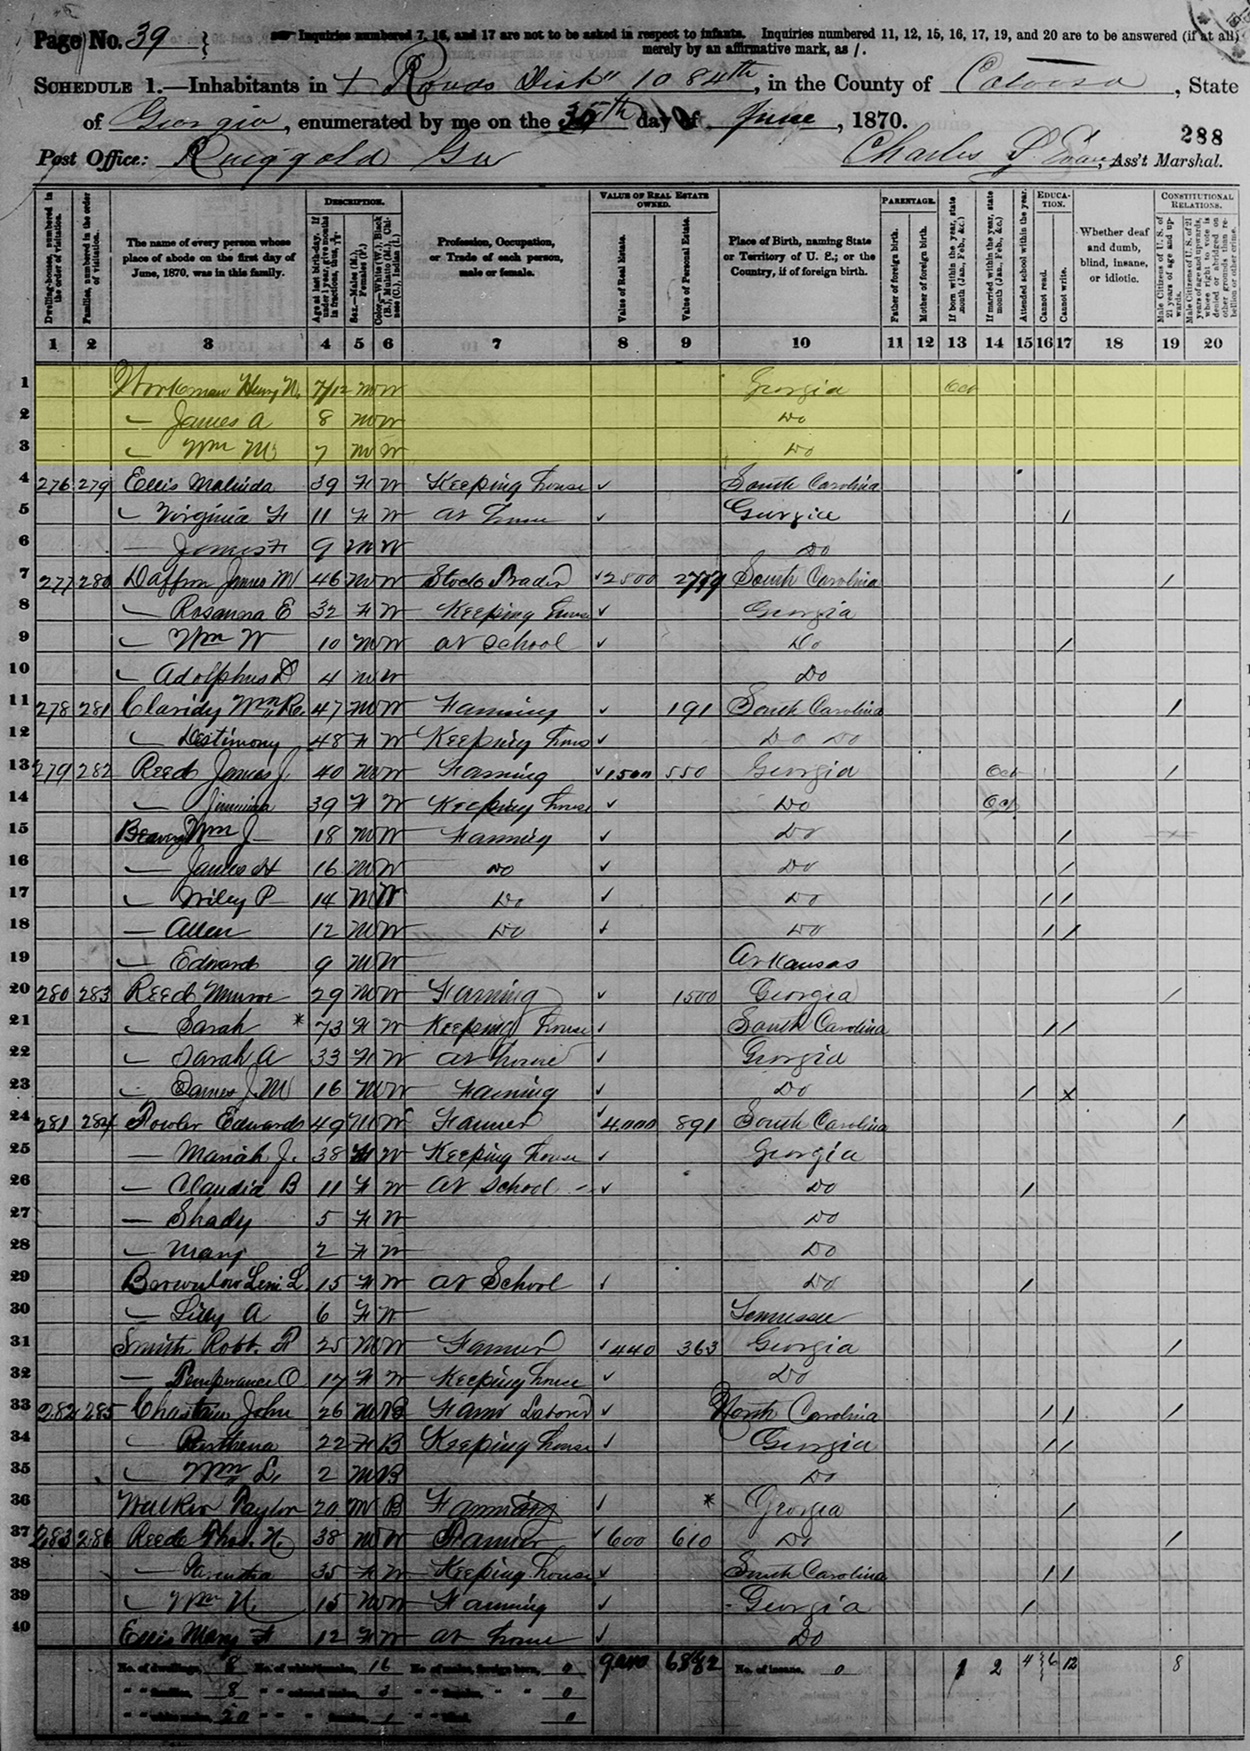 Page No. 39 } Inquiries numbered 7, 16, and 17 are not to be asked in respect to infants. Inquiries numbered 11, 12, 15, 16, 17, 19, and 20 are to be answered (if at all)
merely by an affirmative mark, as /.
SCHEDULE 1.—Inhabitants in Dist 1084th, in the County of Catoosa, State
of Georgia, enumerated by me on the day of June, 1870.
288
Post Office: Ringgold Ga Charles, Ass't Marshal.
DESCRIPTION. VALUE OF REAL ESTATE OWNED. PARENTAGE. EDUCATION. CONSTITUTIONAL RELATIONS.
Dwelling-houses, numbered in the order of visitation.
Families, numbered in the order of visitation.
The name of every person whose place of abode on the first day of June, 1870, was in this family.
Age at last birth-day. If under 1 year, give months in fractions, thus, 
Sex.—Males (M.), Females (F.)
Color.—White (W.), Black (B.), Mulatto (M.), Chinese (C.), Indian (I.)
Profession, Occupation, or Trade of each person, male or female.
Value of Real Estate.
Value of Personal Estate.
Place of Birth, naming State or Territory of U. S.; or the Country, if of foreign birth.
Father of foreign birth.
Mother of foreign birth.
If born within the year, state month (Jan., Feb., &c.)
If married within the year, state month (Jan., Feb., &c.)
Attended school within the year.
Cannot read.
Cannot write.
Whether deaf and dumb, blind, insane, or idiotic.
Male Citizens of U. S. of 21 years of age and upwards.
Male Citizens of U. S. of 21 years of age and upwards, whose right to vote is denied or abridged on other grounds than rebellion or other crime.
1 2 3 4 5 6 7 8 9 10 11 12 13 14 15 16 17 18 19 20
1 Workman Henry N. 7/12 M W Georgia Oct
2 — James A 8 M W Do
3 — Wm M 7 M W Do
4 276 279 Ellis Malinda 39 F W Keeping house ✓ South Carolina
5 — Virginia F 11 F W At home ✓ Georgia /
6 — James F 9 M W Do
7 277 280 Daffron James M 46 M W Stock Trader ✓ 2500 South Carolina /
8 — Rosanna E 32 F W Keeping house ✓ Georgia
9 — Wm W 10 M W At School ✓ Do /
10 — Adolphus D 4 M W Do
11 278 281 Claridy Wm R. 47 M W Farming ✓ 191 South Carolina /
12 — Destimony 48 F W Keeping house ✓ Do Do
13 279 282 Reed James J. 40 M W Farming ✓ 1500 550 Georgia Oct /
14 — Jimima 39 F W Keeping house ✓ Do Oct
15 Beavers Wm J 18 M W Farming ✓ Do /
16 — James H 16 M W Do ✓ Do /
17 — Wiley P 14 M W Do ✓ Do / /
18 — Allen 12 M W Do ✓ Do / /
19 — Edward 9 M W Arkansas
20 280 283 Reed Munroe 29 M W Farming ✓ 1500 Georgia /
21 — Sarah * 73 F W Keeping house ✓ South Carolina / /
22 — Sarah A 33 F W At home ✓ Georgia
23 — James J. M 16 M W Farming ✓ Do / x
24 281 284 Fowler Edward 49 M W Farmer ✓ 4,000 891 South Carolina /
25 — Mariah J. 38 F W Keeping house ✓ Georgia
26 — Claudia B 11 F W At School ✓ Do /
27 — Shady 5 F W Do
28 — Mary 2 F W Do
29 Brownlow L. 15 F W At School ✓ Do /
30 — Lily A 6 F W Tennessee
31 Smith Robt. P 25 M W Farmer ✓ 440 363 Georgia /
32 — Temperance O 17 F W Keeping house ✓ Do
33 282 285 Chastain John 26 M B Farm Laborer ✓ North Carolina / / /
34 — Parthena 22 F B Keeping house ✓ Georgia / /
35 — Wm L. 2 M B Do
36 Walker Taylor 20 M B Farming ✓ * Georgia /
37 283 286 Reed Thos. H 38 M W Farmer ✓ 600 610 Do /
38 — 35 F W Keeping house ✓ South Carolina / /
39 — Wm H. 15 M W Farming ✓ Georgia /
40 Ellis Mary F 12 F W At home ✓ Do
No. of dwellings, 8 No. of white females, 16 No. of males, foreign born, 0 No. of insane, 0 1 2 4 6 12 8
" " families, 8 " " colored males, 3 " " " " 0
" " white males, 20 " " " females, 1 " " blind, 0